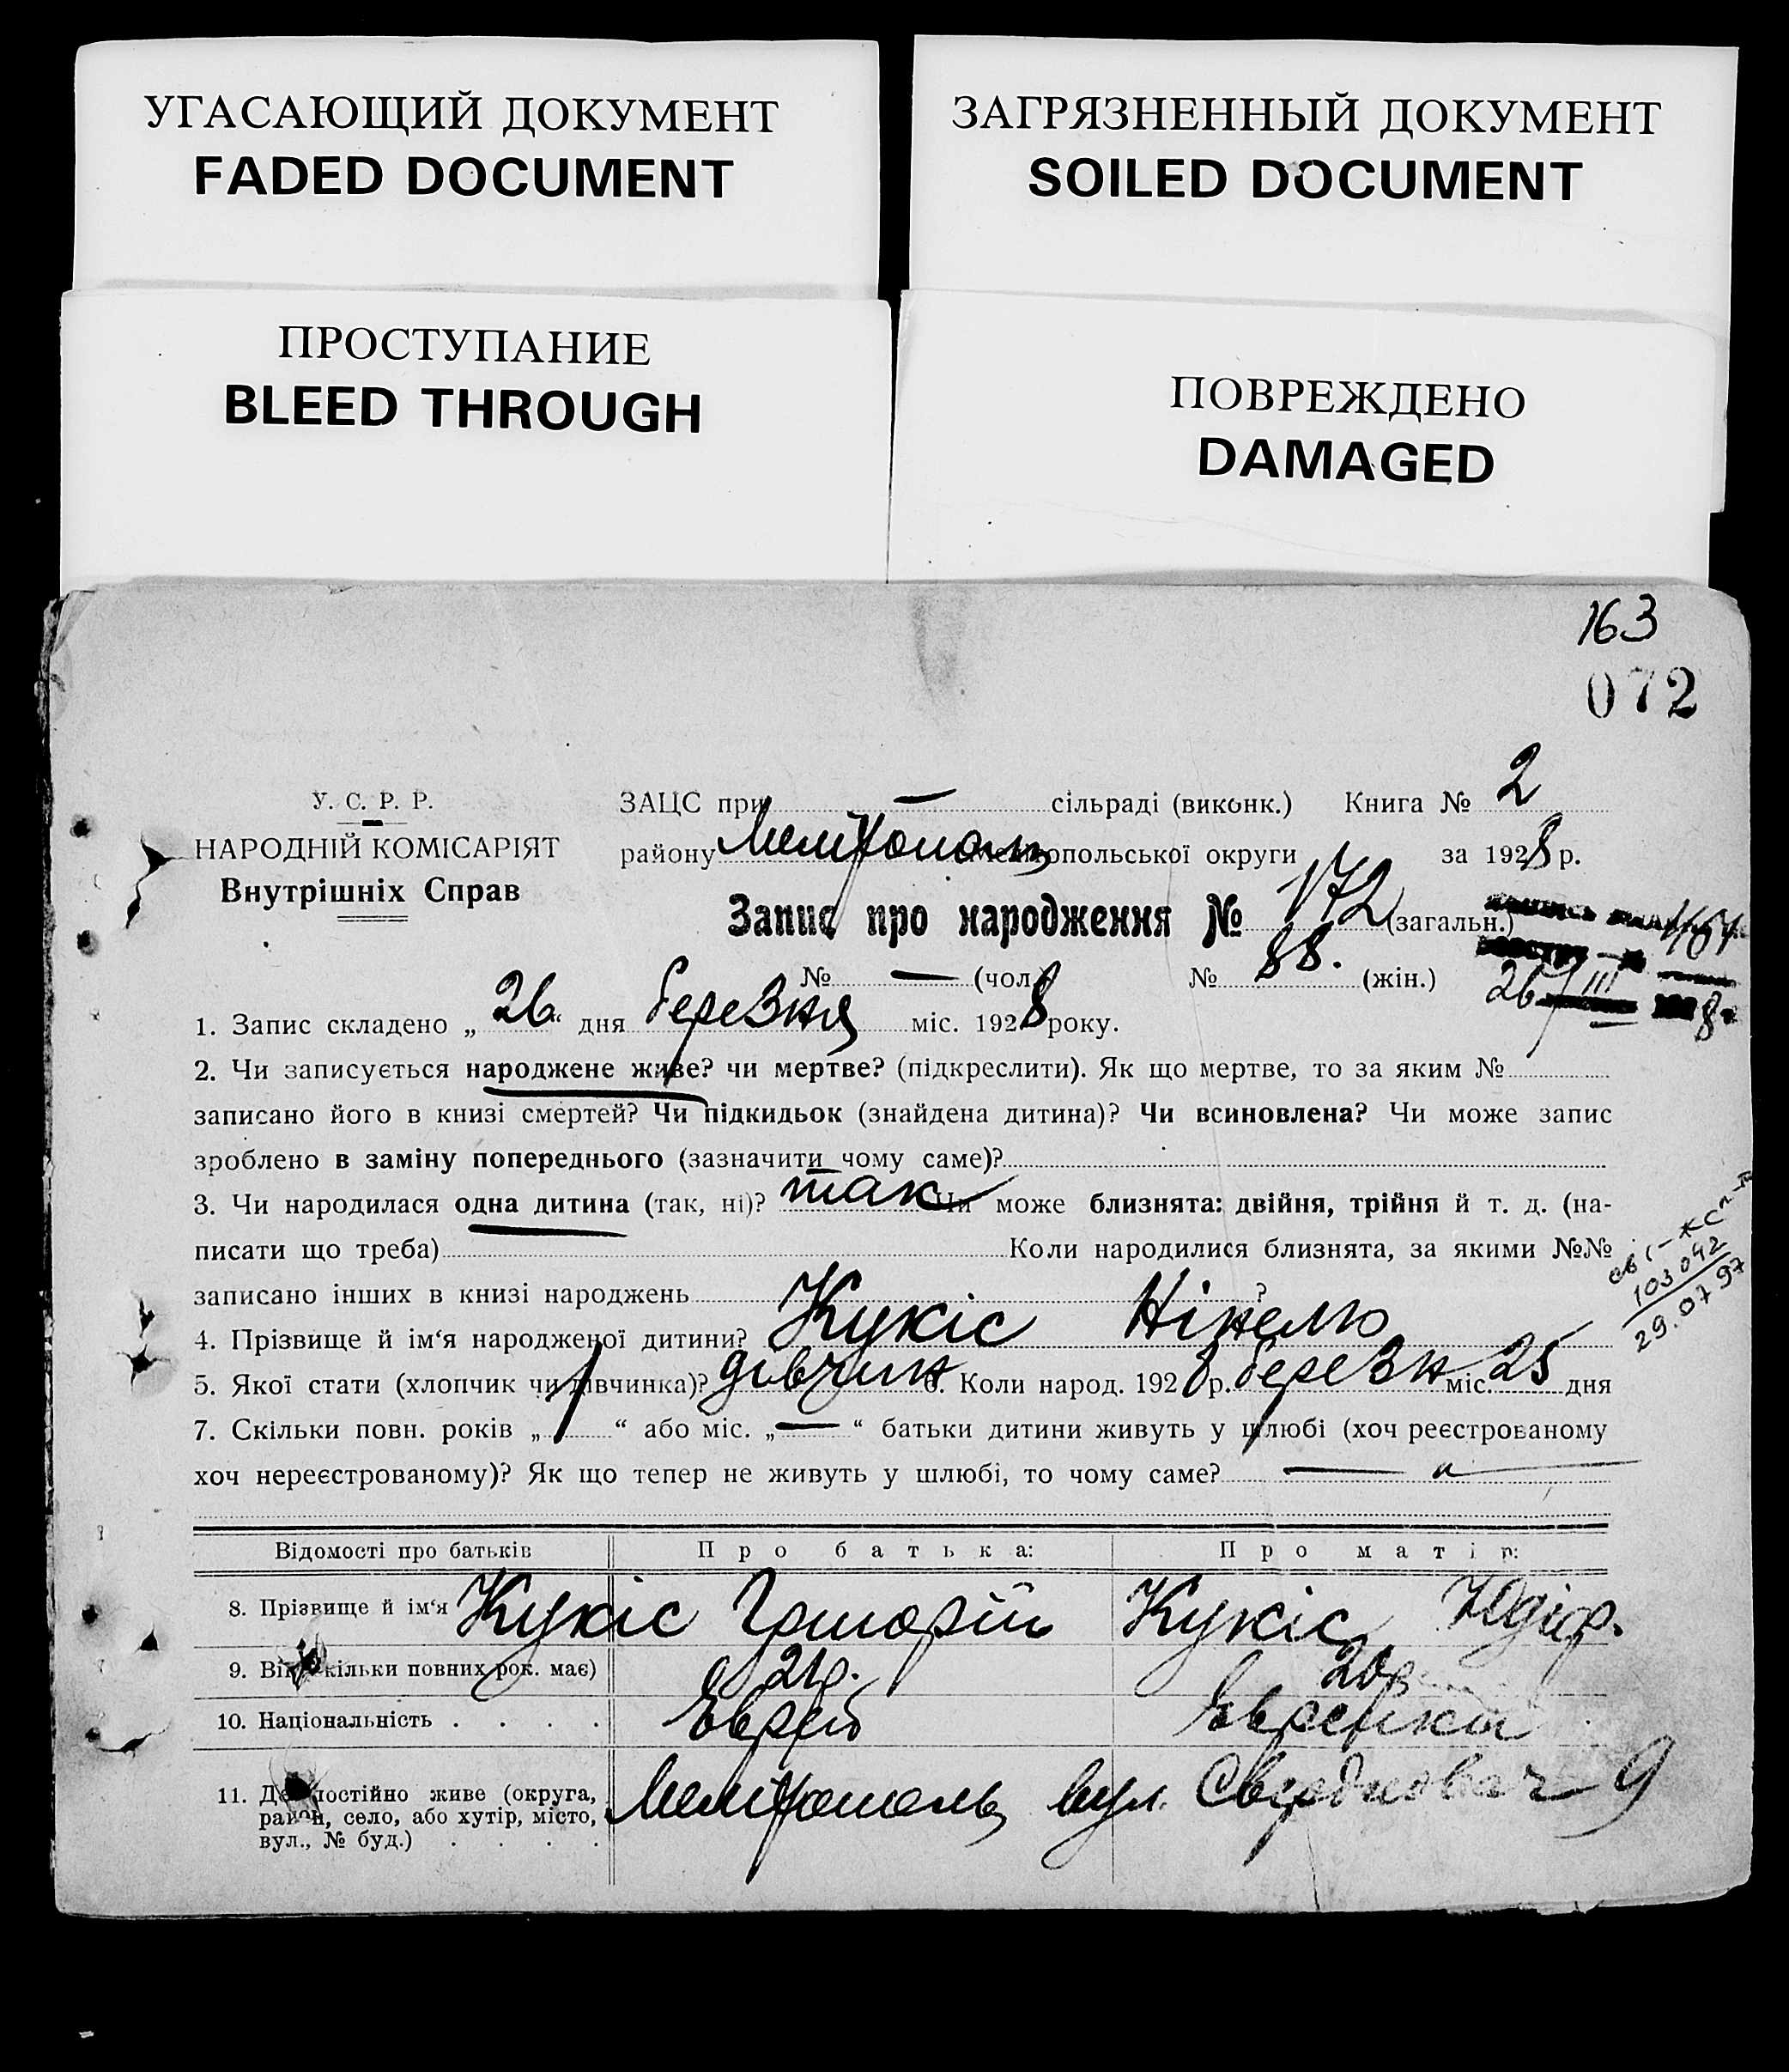 УГАСАЮЩИЙ ДОКУМЕНТ
FADED DOCUMENT
ЗАГРЯЗНЕННЫЙ ДОКУМЕНТ
SOILED DOCUMENT
ПРОСТУПАНИЕ
BLEED THROUGH
ПОВРЕЖДЕНО
DAMAGED
163
072
У. С. Р. Р.
НАРОДНІЙ КОМІСАРІЯТ
Внутрішніх Справ
ЗАЦС при — сільраді (виконк.) Книга № 2
району Мелітополь Мелітопольської округи за 1928 р.
Запис про народження № 172 (загальн.)
№ — (чол.) № 88. (жін.)
26/III 8
1. Запис складено „26“ дня березня міс. 1928 року.
2. Чи записується народжене живе? чи мертве? (підкреслити). Як що мертве, то за яким №
записано його в книзі смертей? Чи підкидьок (знайдена дитина)? Чи всиновлена? Чи може запис
зроблено в заміну попереднього (зазначити чому саме)?
3. Чи народилася одна дитина (так, ні)? так Чи може близнята: двійня, трійня й т. д. (на-
писати що треба) Коли народилися близнята, за якими №№
записано інших в книзі народжень ?
103042
29.07 97
4. Прізвище й ім‘я народженої дитини? Кукіс Нінель
5. Якої стати (хлопчик чи дівчинка)? дівчин 6. Коли народ. 1928 р. березн міс. 25 дня
7. Скільки повн. років „1“ або міс. „—“ батьки дитини живуть у шлюбі (хоч реєстрованому
хоч нереєстрованому)? Як що тепер не живуть у шлюбі, то чому саме? —
Відомості про батьків Про батька: Про матір:
8. Прізвище й ім‘я Кукіс Григорій Кукіс Юдіф.
9. Вік (скільки повних рок. має) 21р. 20р.
10. Національність . . . . Єврей Єврейка
11. Де постійно живе (округа,
район, село, або хутір, місто,
вул., № буд.) . . . .
Мелітополь вул. Свердлова ч 9